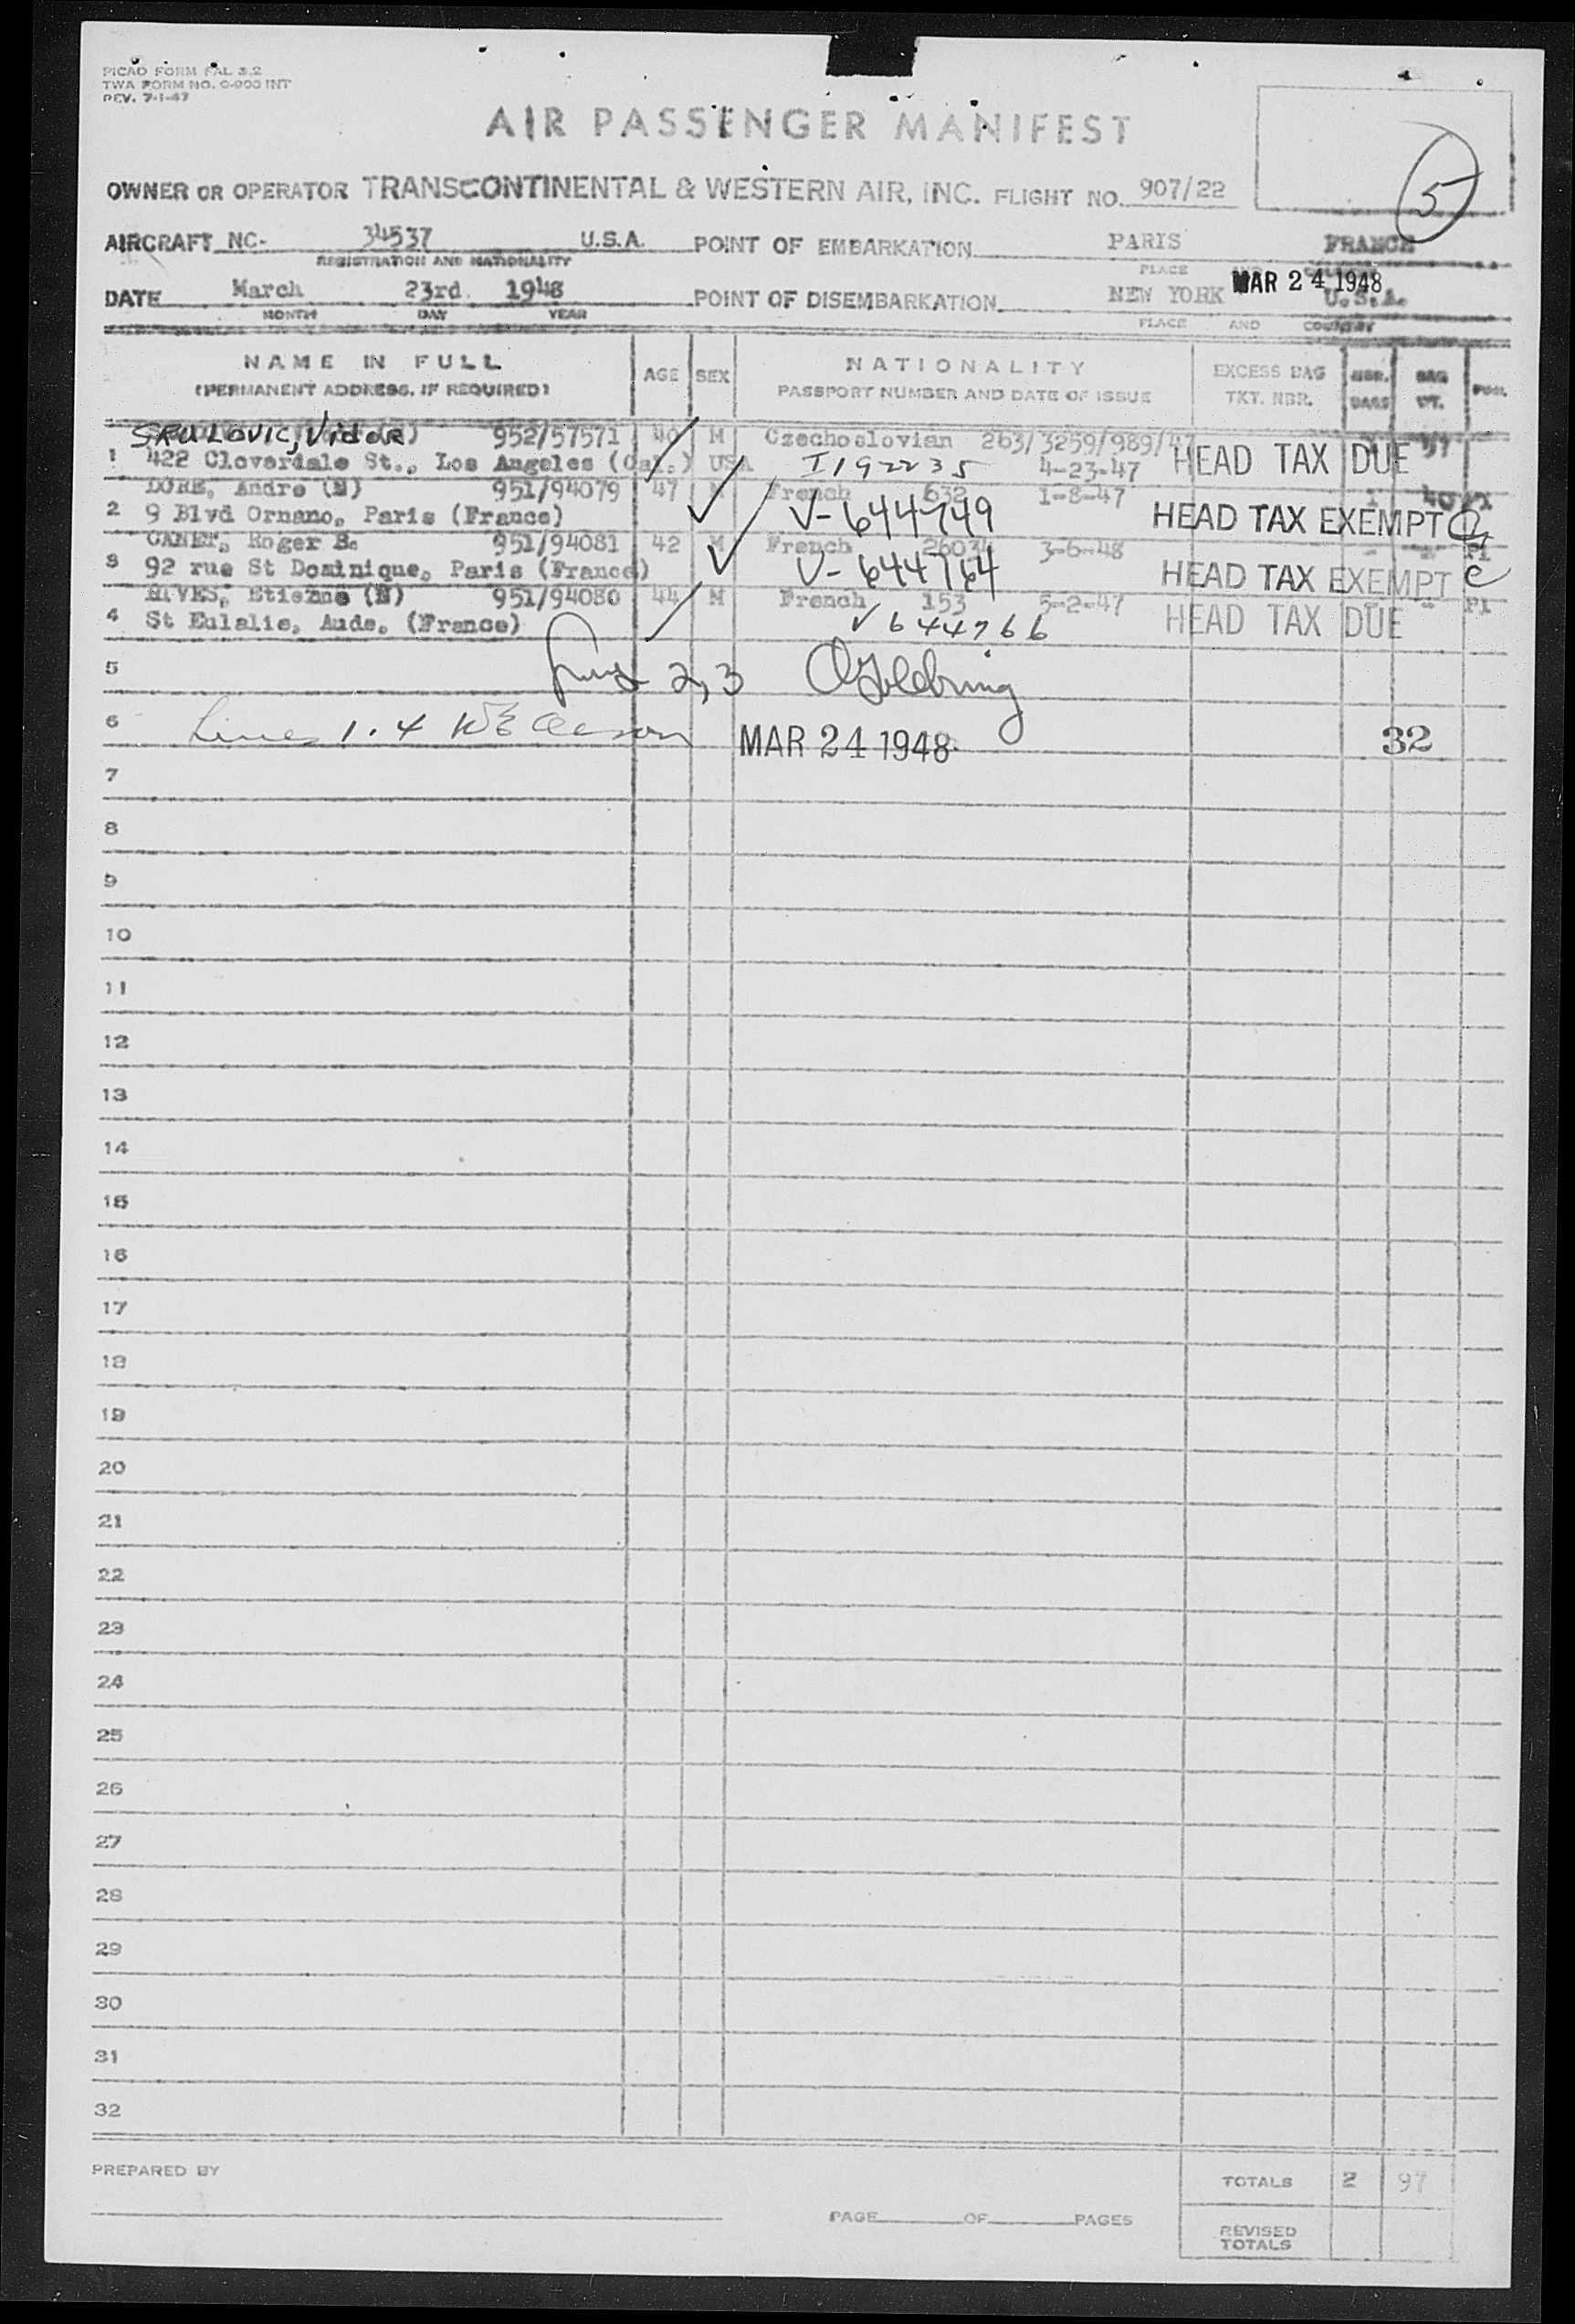 PICAO FORM FAL 3.2
TWA FORM NO. O-900 INT
REV. 7-1-47
AIR PASSENGER MANIFEST
5
OWNER OR OPERATOR TRANSCONTINENTAL & WESTERN AIR, INC. FLIGHT NO. 907/22
AIRCRAFT NC- 34537 U.S.A. POINT OF EMBARKATION PARIS FRANCE
REGISTRATION AND NATIONALITY PLACE
DATE March 23rd 1948 POINT OF DISEMBARKATION NEW YORK MAR 24 1948 U.S.A.
MONTH DAY YEAR PLACE AND COUNTRY
NAME IN FULL AGE SEX NATIONALITY EXCESS BAG NBR. BAG POOL
(PERMANENT ADDRESS, IF REQUIRED) PASSPORT NUMBER AND DATE OF ISSUE TKT. NBR. BAGS WT.
SRULOVIC, Vidor 952/57571 40 M Czechoslovian 263/3259/989/47
1 422 Cloverdale St., Los Angeles (Cal.) USA I192235 4-23-47 HEAD TAX DUE 57
DORE, Andre (M) 951/94079 47 M French 632 1-8-47 1 40
2 9 Blvd Ornano, Paris (France) V-644749 HEAD TAX EXEMPT
CANET, Roger B. 951/94081 42 M French 26034 3-6-48 P1
3 92 rue St Dominique, Paris (France) V-644764 HEAD TAX EXEMPT
RIVES, Etienne (M) 951/94080 44 M French 153 5-2-47 P1
4 St Eulalie, Aude, (France) V644766 HEAD TAX DUE
5 2, 3
6 Lines 1.4 MAR 24 1948 32
7
8
9
10
11
12
13
14
15
16
17
18
19
20
21
22
23
24
25
26
27
28
29
30
31
32
PREPARED BY TOTALS 2 97
PAGE OF PAGES REVISED
TOTALS